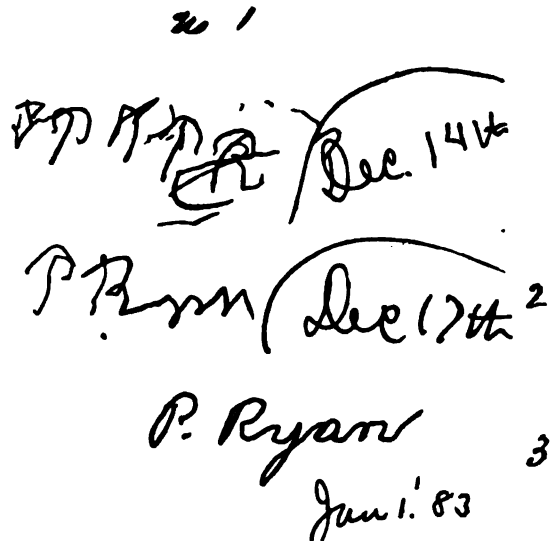 No 1
Dec. 14th
P. Ryan Dec 17th 2
P. Ryan 3
Jan 1. '83